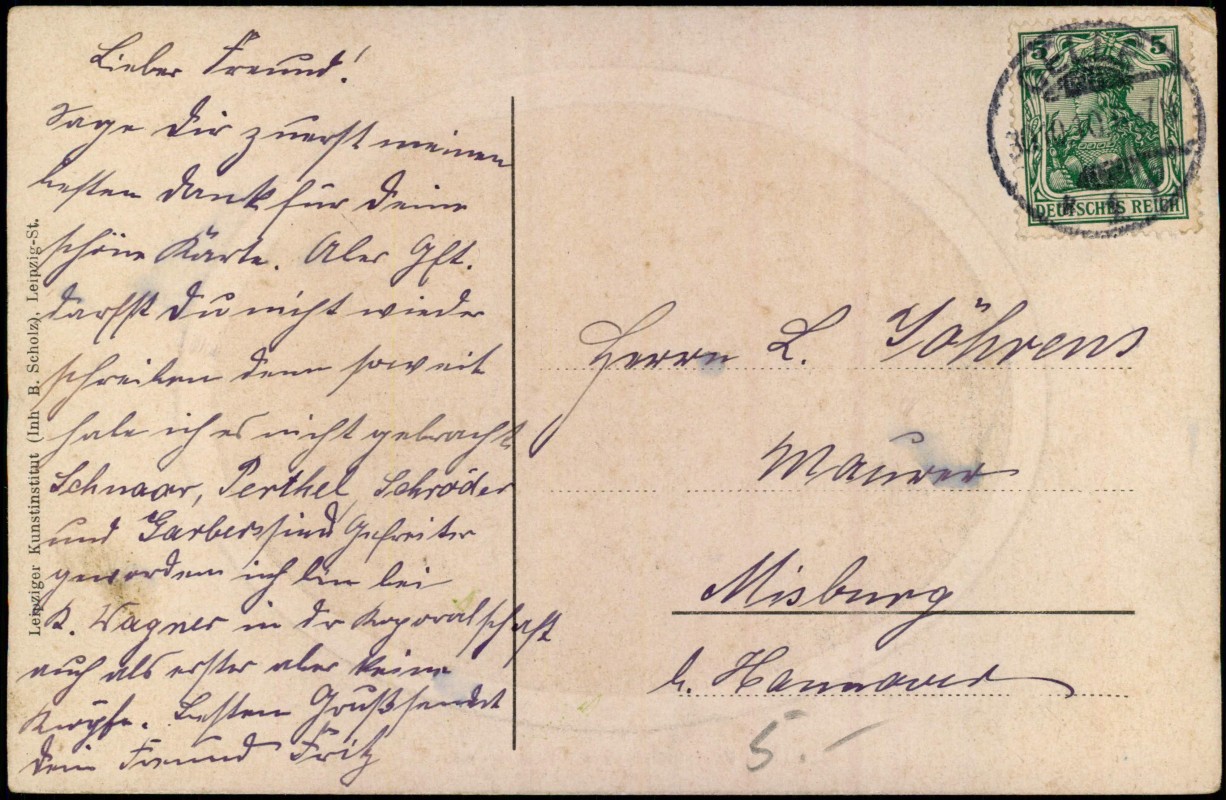 Lieber Freund!
Sage Dir zuerst meinen
besten Dank für Deine
schöne Karte. Aber Gft.
darfst Du nicht wieder
schreiben denn soweit
habe ich es nicht gebracht
Schnaar, Perthel, Schröder
und Garbers sind Gefreiter
geworden ich bin bei
K. Wagner in dr Koporalschaft
auch als erster aber keine
Knöpfe. Besten Gruß sendet
Dein Freund Fritz
Leipziger Kunstinstitut (Inh B. Scholz), Leipzig-St.
5 5
DEUTSCHES REICH
Herrn L. Göhrens
Maurer
Misburg
b. Hannover
5.-